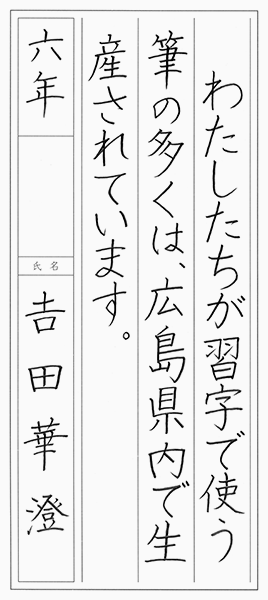 わたしたちが習字で使う
筆の多くは、広島県内で生
産されています。
六年
氏名
吉田華澄